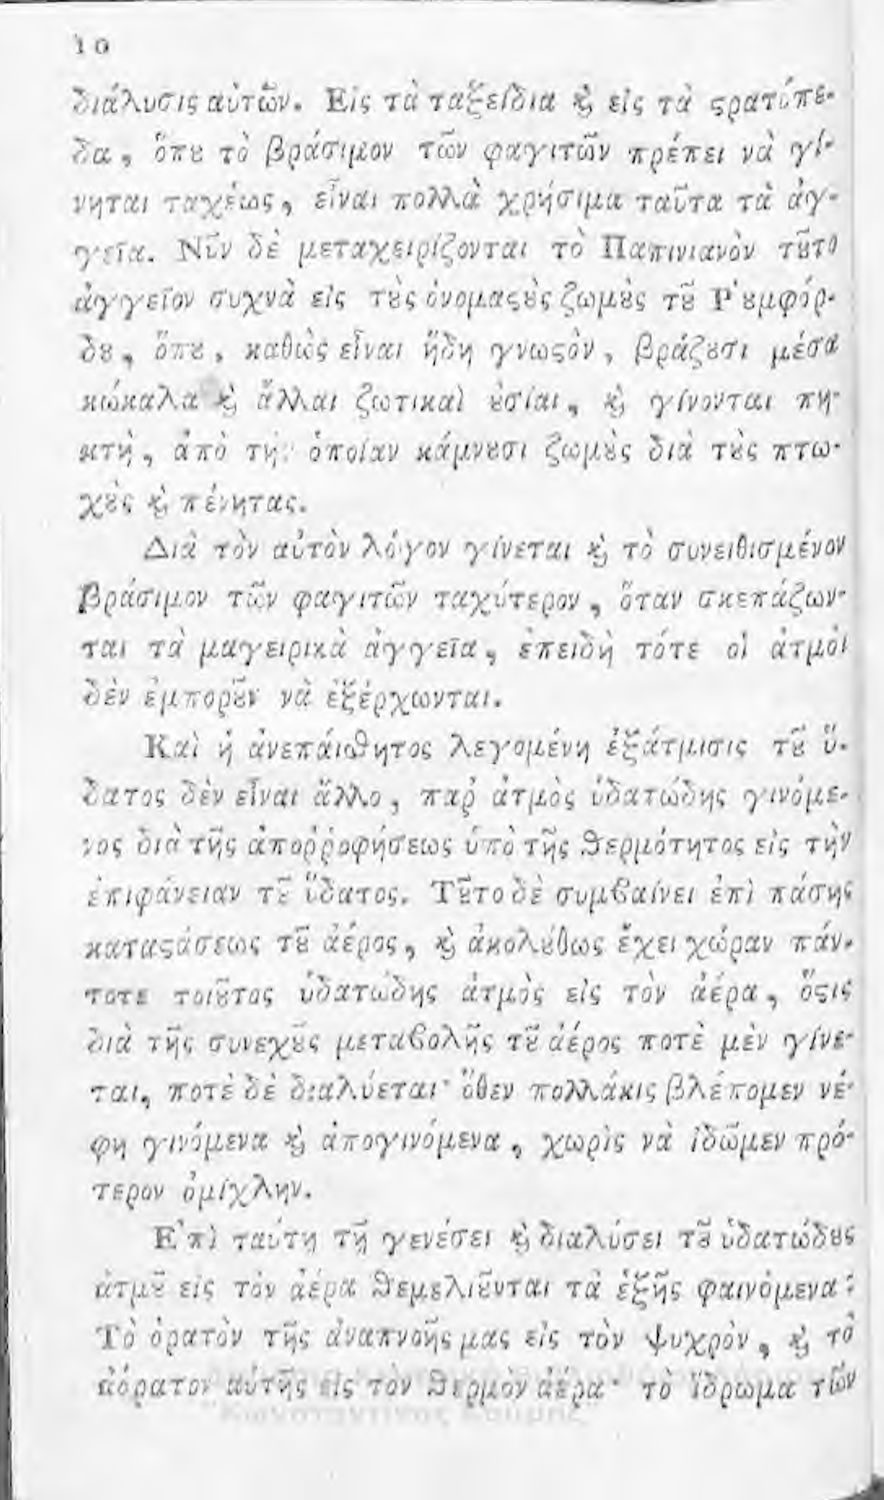 10
διάλυσις αὐτῶν. Εἰς τὰ ταξείδια ϗ̀ εἰς τὰ ϛρατόπε-
δα, ὅπȣ τὸ βράσιμον τῶν φαγιτῶν πρέπει νὰ γί-
νηται ταχέως, εἶναι πολλὰ χρήσιμα ταῦτα τὰ ἀγ-
γεῖα. Νῦν δὲ μεταχειρίζονται τὸ Παπινιανὸν τȣ͂το
ἀγγεῖον συχνὰ εἰς τȣ̀ς ὀνομαϛȣ̀ς ζωμȣ̀ς τȣ͂ Ῥȣμφόρ-
δȣ, ὅπȣ, καθὼς εἶναι ἤδη γνωϛὸν, βράζȣσι μέσα
κώκαλα ϗ̀ ἄλλαι ζωτικαὶ ȣ̓σίαι, ϗ̀ γίνονται πη-
κτὴ, ἀπὸ τὴν ὁποίαν κάμνȣσι ζωμȣ̀ς διὰ τȣ̀ς πτω-
χȣ̀ς ϗ̀ πένητας.
Διὰ τὸν αὐτὸν λόγον γίνεται ϗ̀ τὸ συνειθισμένον
βράσιμον τῶν φαγιτῶν ταχύτερον, ὅταν σκεπάζων-
ται τὰ μαγειρικὰ ἀγγεῖα, ἐπειδὴ τότε οἱ ἀτμοὶ
δὲν ἐμπορȣ͂ν νὰ ἐξέρχωνται.
Καὶ ἡ ἀνεπάιϑητος λεγομένη ἐξάτμισις τȣ͂ ὕ-
δατος δὲν εἶναι ἄλλο, παῤ ἀτμὸς ὑδατώδης γινόμε-
νος διὰ τῆς ἀποῤῥοφήσεως ὑπὸ τῆς ϑερμότητος εἰς τὴν
ἐπιφάνειαν τȣ͂ ὕδατος. Τȣ͂το δὲ συμϐαίνει ἐπὶ πάσης
καταϛάσεως τȣ͂ ἀέρος, ϗ̀ ἀκολȣ́θως ἔχει χώραν πάν-
τοτε τοιȣ͂τος ὑδατώδης ἀτμὸς εἰς τὸν ἀέρα, ὅϛις
διὰ τῆς συνεχȣ͂ς μεταϐολῆς τȣ͂ ἀέρος ποτὲ μὲν γίνε-
ται, ποτὲ δὲ διαλύεται· ὅθεν πολλάκις βλέπομεν νέ-
φη γινόμενα ϗ̀ ἀπογινόμενα, χωρὶς νὰ ἰδῶμεν πρό-
τερον ὁμίχλην.
Ἐπὶ ταύτη τῇ γενέσει ϗ̀ διαλύσει τȣ͂ ὑδατώδȣς
ἀτμȣ͂ εἰς τὸν ἀέρα ϑεμελιȣ͂νται τὰ ἑξῆς φαινόμενα:
Τὸ ὁρατὸν τῆς ἀναπνοῆς μας εἰς τὸν ψυχρὸν, ϗ̀ τὸ
ἀόρατον αὐτῆς εἰς τὸν ϑερμὸν ἀέρα· τὸ ἵδρωμα τῶν